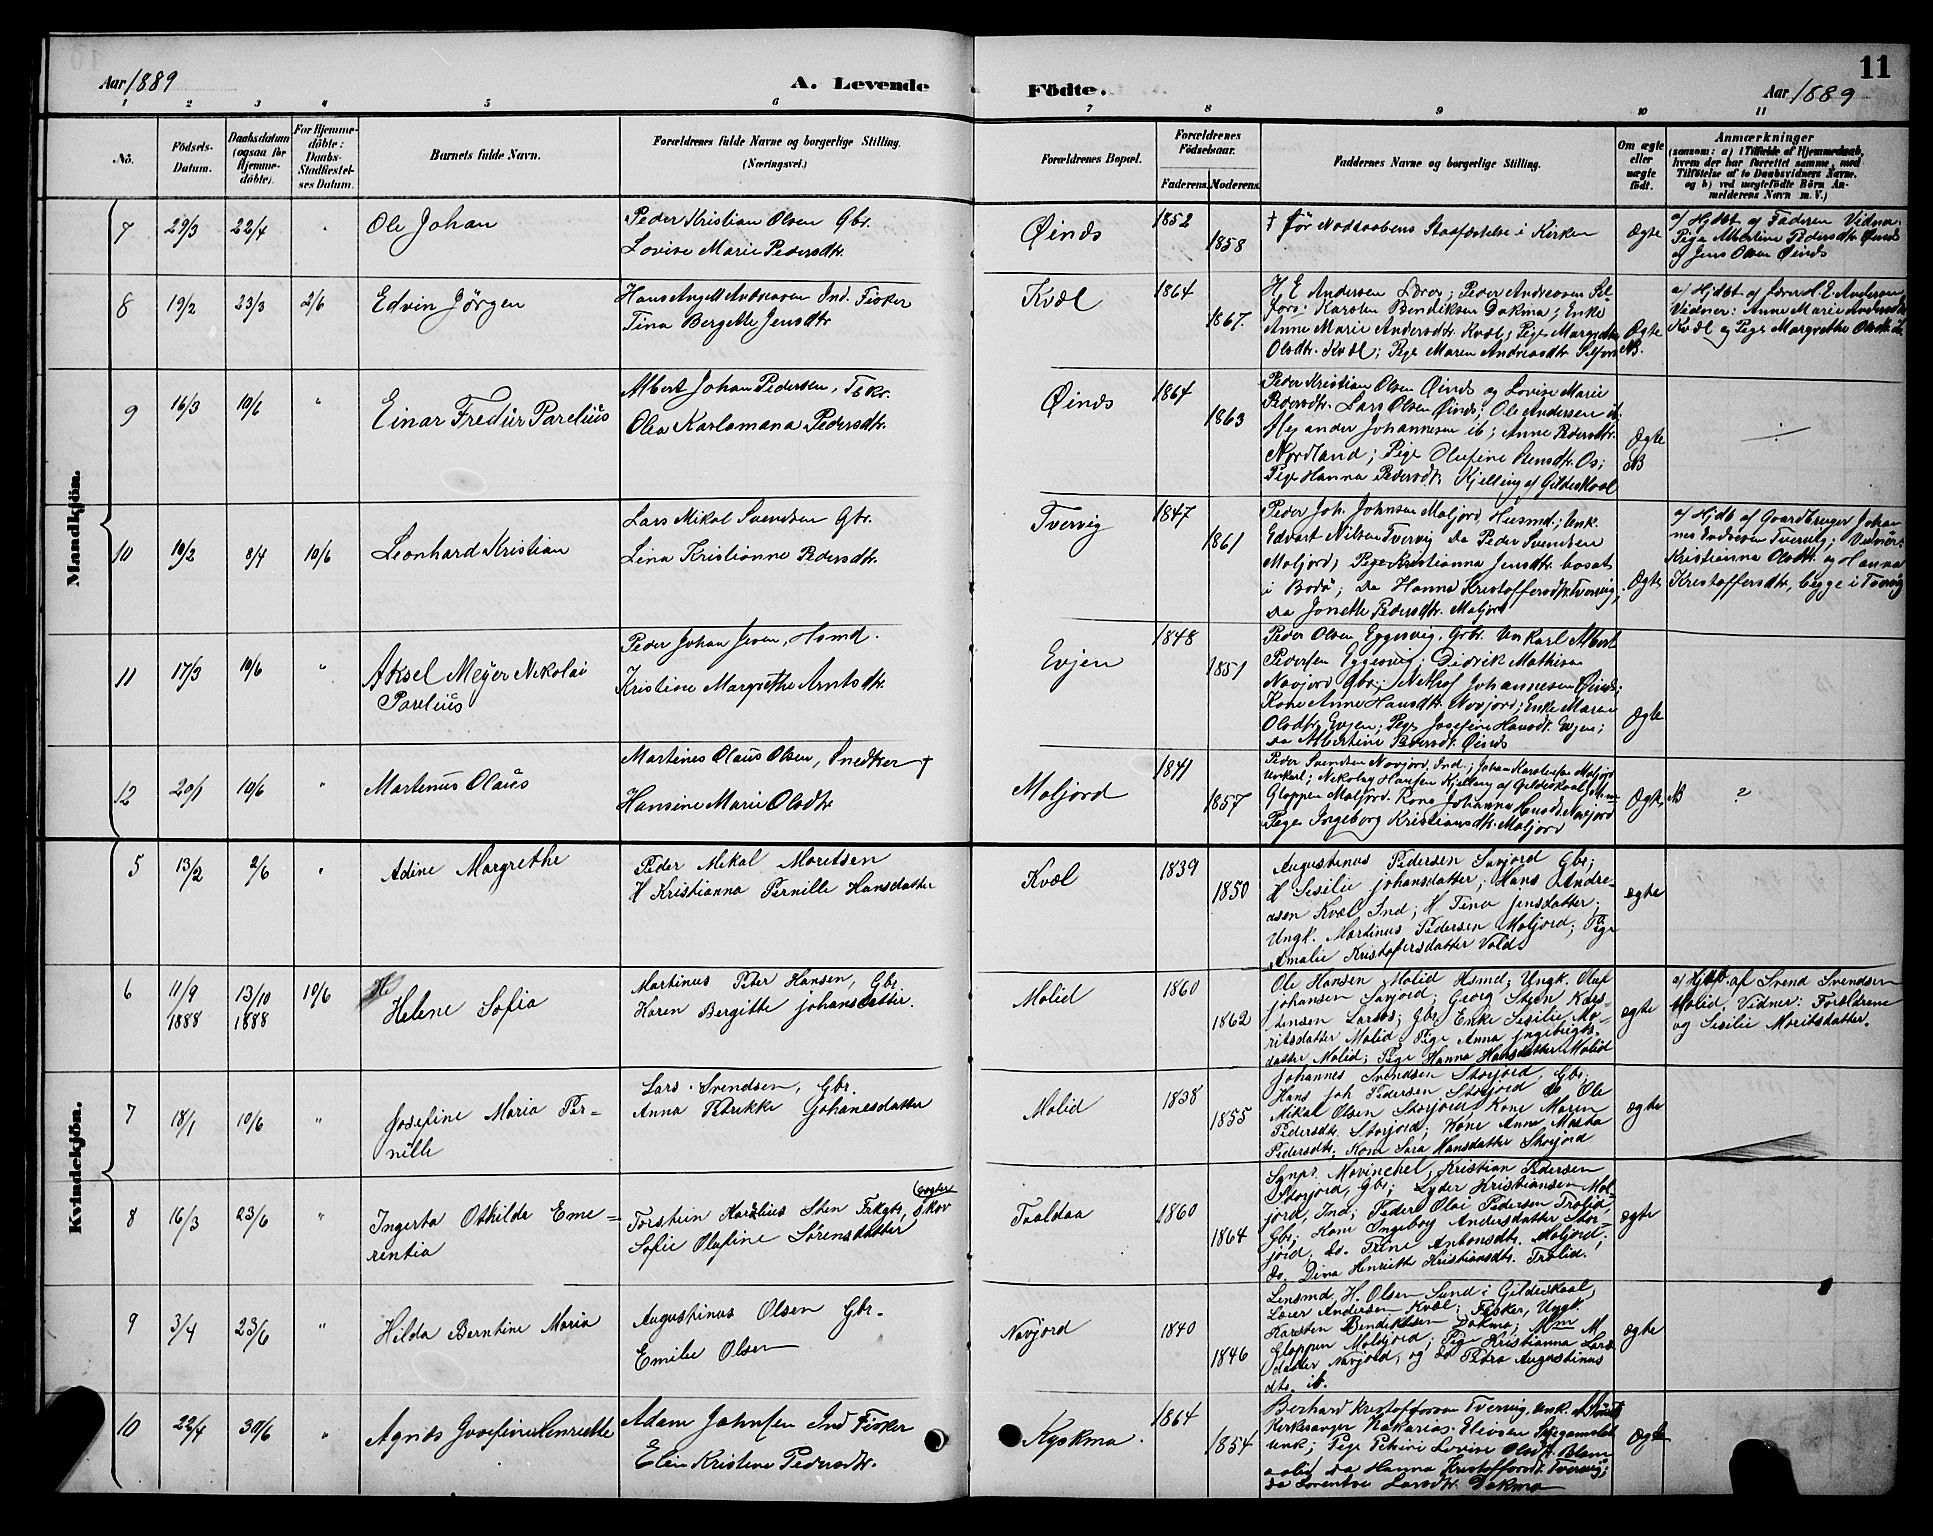 11
Aar 1889
A. Levende Födte.
Aar 1889
1 2 3 4 5 6 7 8 9 10 11
No.
Födsels-Datum.
Daabsdatum (ogsaa for Hjemme-döbte).
For Hjemme-döbte: Daabs-Stadfæstel-ses Datum.
Barnets fulde Navn.
Forældrenes fulde Navne og borgerlige Stilling. (Næringsvei.)
Forældrenes Bopæl.
Forældrenes Födselsaar.
Faderens. Moderens.
Faddernes Navne og borgerlige Stilling.
Om ægte eller uægte födt.
Anmærkninger
(saasom: a) i Tilfælde af Hjemmedaab, hvem der har forrettet samme, med Tilföielse af to Daabsvidners Navne, og b) ved uægtefödte Börn Anmelderens Navn m. V.)
Mandkjön.
7 29/3 22/4 "
Ole Johan
Peder Kristian Olsen Gbr.
Lovise Marie Pedersdtr.
Øinds
1852
1858
† før Nøddaabens Stadfæstelse i Kirken
Ægte
a/ Hjdbt af Faderen Vidner:
Pige Albertine Pedersdtr. Øinds
og Jens Olsen Øinds
8 19/2 23/3 2/6
Edvin Jörgen
Hans Angell Andreasen Ind. Fisker
Tina Bergette Jensdtr
Kvæl
1864
1867.
H. E. Andersen Lærer; Peder Andreasen Sel-
fors; Karsten Bendiksen Dokmo; Enke
Anne Marie Andersdtr. Kvæl; Pige Margrethe
Olsdtr. Kvæl; Pige Maren Andreasdtr. Selfors
Ægte
NB.
a/ Hjdbt af Lærer H. E. Andersen
Vidner: Anne Marie Andersdtr
Kvæl og Pige Margrethe Olsdtr. ib
9 16/3 10/6 "
Einar Fredur Parelius
Albert Johan Pedersen, Fskr.
Olea Karlamana Pedersdtr.
Øinds
1864
1863
Peder Kristian Olsen Øinds og Lovise Marie
Pedersdtr. Lars Olsen Øinds; Ole Andersen ib.
Alexander Johannesen ib; Anne Pedersdtr.
Nordland; Pige Olufine Stensdtr. Os;
Pige Hanna Pedersdtr. Kjelling af Gildeskaal
Ægte
NB
10 19/2 8/4 10/6
Leonhard Kristian
Lars Mikal Svendsen Gbr.
Lina Kristianne Pedersdtr.
Tvervig
1847
1861
Peder Joh. Johnsen Moljord, Husmd; Unk.
Edvart Nilsen Tvervig Do Peder Svendsen
Moljord; Pige Kristianna Jensdtr. bosat
i Bodø; Do Hanna Kristoffersdtr. Tvervig;
Do Jonette Pedersdtr. Moljord
Ægte
a/ Hjdbt af Gaardbruger Johan-
nes Endresen Tvervig; Vidner:
Kristianna Olsdtr. og Hanna
Kristoffersdtr, begge i Tvervig
11 17/3 10/6 "
Aksel Meyer Nikolai
Parelius
Peder Johan Jensen, Hsmd.
Kristine Margrethe Arntsdtr.
Evjen
1848
1851
Peder Olsen Eggesvig. Grbr. Unkarl Albert
Pedersen Eggesvig; Didrik Mathisen
Novjord Gbr; Johannesen Øinds;
Kone Anne Hansdtr. Novjord; Enke Maren
Olsdtr. Evjen; Pige Josefine Hansdtr. Evjen;
Do Albertine Pedersdtr. Øinds
Ægte
12 20/1 10/6 "
Martenus Olaus
Martines Olaus Olsen, Snedker †
Hansine Marie Olsdtr
Moljord
1841
1857
Peder Svendsen Novjord, Ind.; Johan Karolusen Moljord
Unkarl; Nikolay Hansen Kjelling af Gildeskaal; Mm
Gloppen Moljord. Kone Johanna Hansdtr. Novjord
Pige Ingeborg Kristiansdtr. Moljord
Ægte
NB ?
Kvindekjön.
5 13/2 2/6 "
Adine Margrethe
Peder Mikal Moritsen
H Kristianna Pernille Hansdatter
Kvæl
1839
1850
Augustinus Pedersen Savjord Gbr;
H Sesilie Johansdatter; Hans Andre-
asen Kvæl Ind; H. Tina Jensdatter;
Ungk. Martinus Pedersen Moljord; Pige
Amalie Kristofersdatter Vold.
ægte
6 11/9 1888 13/10 1888 10/6
Helene Sofia
Martinus Peter Hansen, Gbr.
Karen Bergitte Johansdatter.
Molid
1860
1862
Ole Hansen Molid Hsmd; Ungk. Oluf
Johansen Savjord; Georg Steen Kars-
tensen Larsos; Gbr. Enke Sesilie Mo-
ritsdatter Molid; Pige Anna Ingebrigts-
datter Molid; Pige Hanna Hansdatter Molid
ægte
a/ Hjdbt. af Svend Svendsen
Molid. Vidner: Forældrene
og Sesilie Moritsdatter.
7 18/1 10/6 "
Josefine Maria Per-
nille
Lars Svendsen, Gbr.
Anna Petrikke Johanesdatter
Molid
1838
1855
Johannes Svendsen Storjord, Gbr.
Hans Joh Pedersen Storjord do Ole
Mikal Olsen Storjord Kone Maren
Pedersdtr. Storjord; Kone Anne Marta
Pedersdtr; Kone Sara Hansdatter Storjord
ægte
8 16/3 23/6 "
Ingerta Othilde Eme-
rentia
Torstein Karelius Sten Fskgbr, Skov
(vogter
Sofie Olufine Sørensdatter
Taaldaa
1860
1864
Kristian Pedersen
Storjord, Gbr; Lyder Kristiansen Mol-
jord, Ind; Peder Olai Pedersen Trolid,
Gbr; Kone Ingeborg Andersdatter Stor-
jord, do. Trine Antonsdtr. Moljord;
do. Dina Henriette Kristiansdtr. Trolid.
ægte
9 3/4 23/6 "
Hilda Berntine Maria
Augustinus Olsen Gbr.
Emilie Olsen
Novjord
1840
1846
Lensmd. H. Olsen Sund i Gildeskaal,
Lærer Andersen Kvæl; Fisker, Ungk.
Karsten Bendiktsen Dokmo; Mm M
Gloppen Moldjord; Pige Kristianna Lars-
datter Novjord, og do Petra Augustinus
dtr. ib.
ægte
10 22/4 30/6 "
Agnes Josefine Henriette
Adam Johnsen Ind Fisker
Elen Kristine Pedersdtr.
Kyskmo.
1864
1854
Berhard Kristoffersen Tvervig, Unk.
Kirkesanger Zakarias Eliesen
Unk; Pige Petrine Lovise Olsdtr.
Do Hanna Kristoffersdtr. Tvervig;
Do Lorentse Larsdtr. Dokmo
Ægte